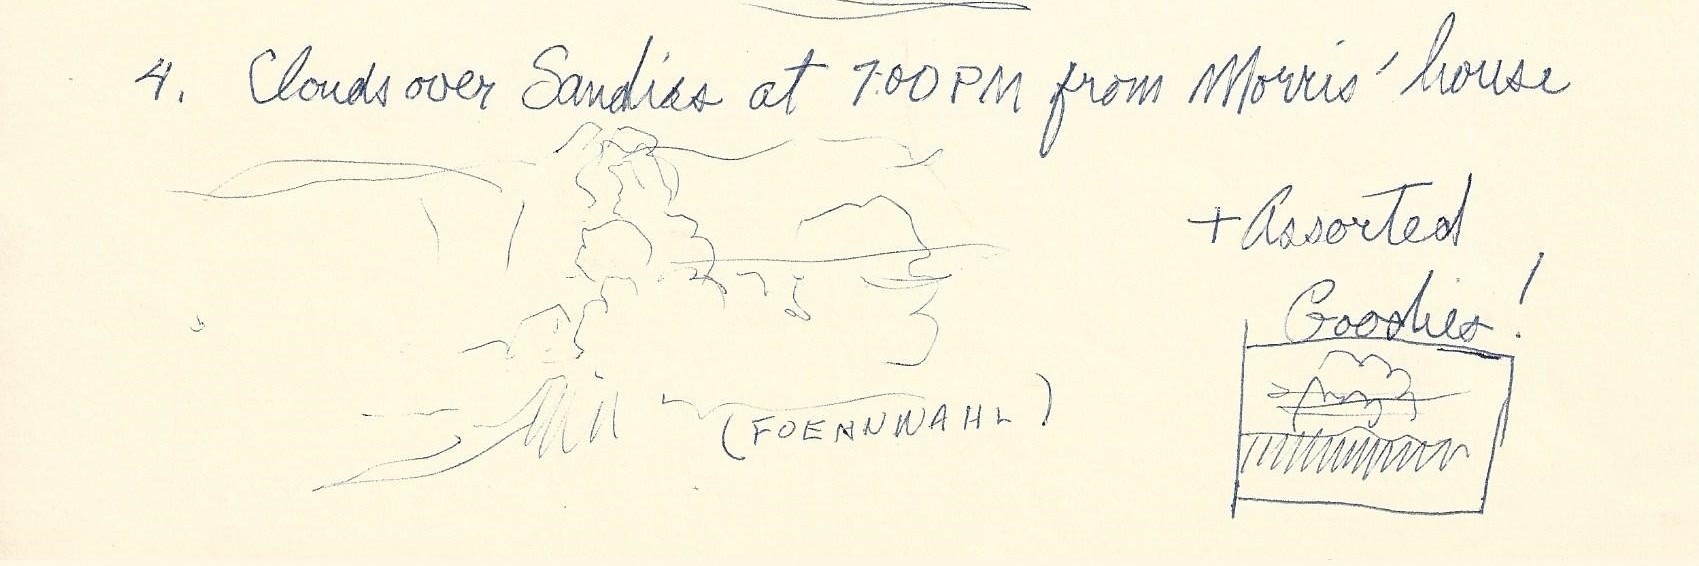 4. Clouds over Sandias at 7:00 PM from Morris' house
+ Assorted
Goodies!
(FOENNWAHL)